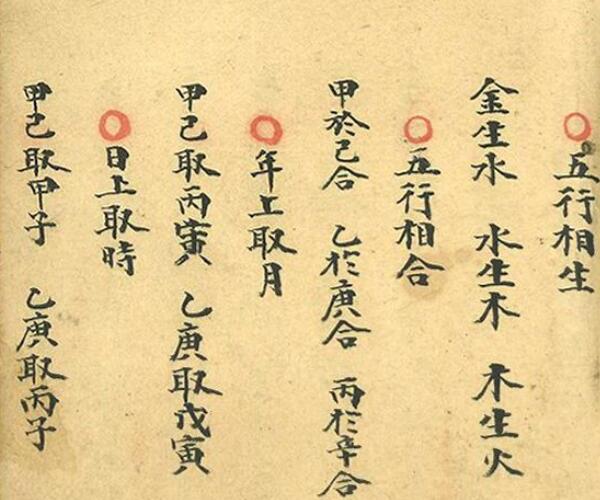 〇五行相生
金生水 水生木 木生火
〇五行相合
甲於己合 乙於庚合 丙於辛合
〇年上取月
甲己取丙寅 乙庚取戊寅
〇日上取時
甲己取甲子 乙庚取丙子